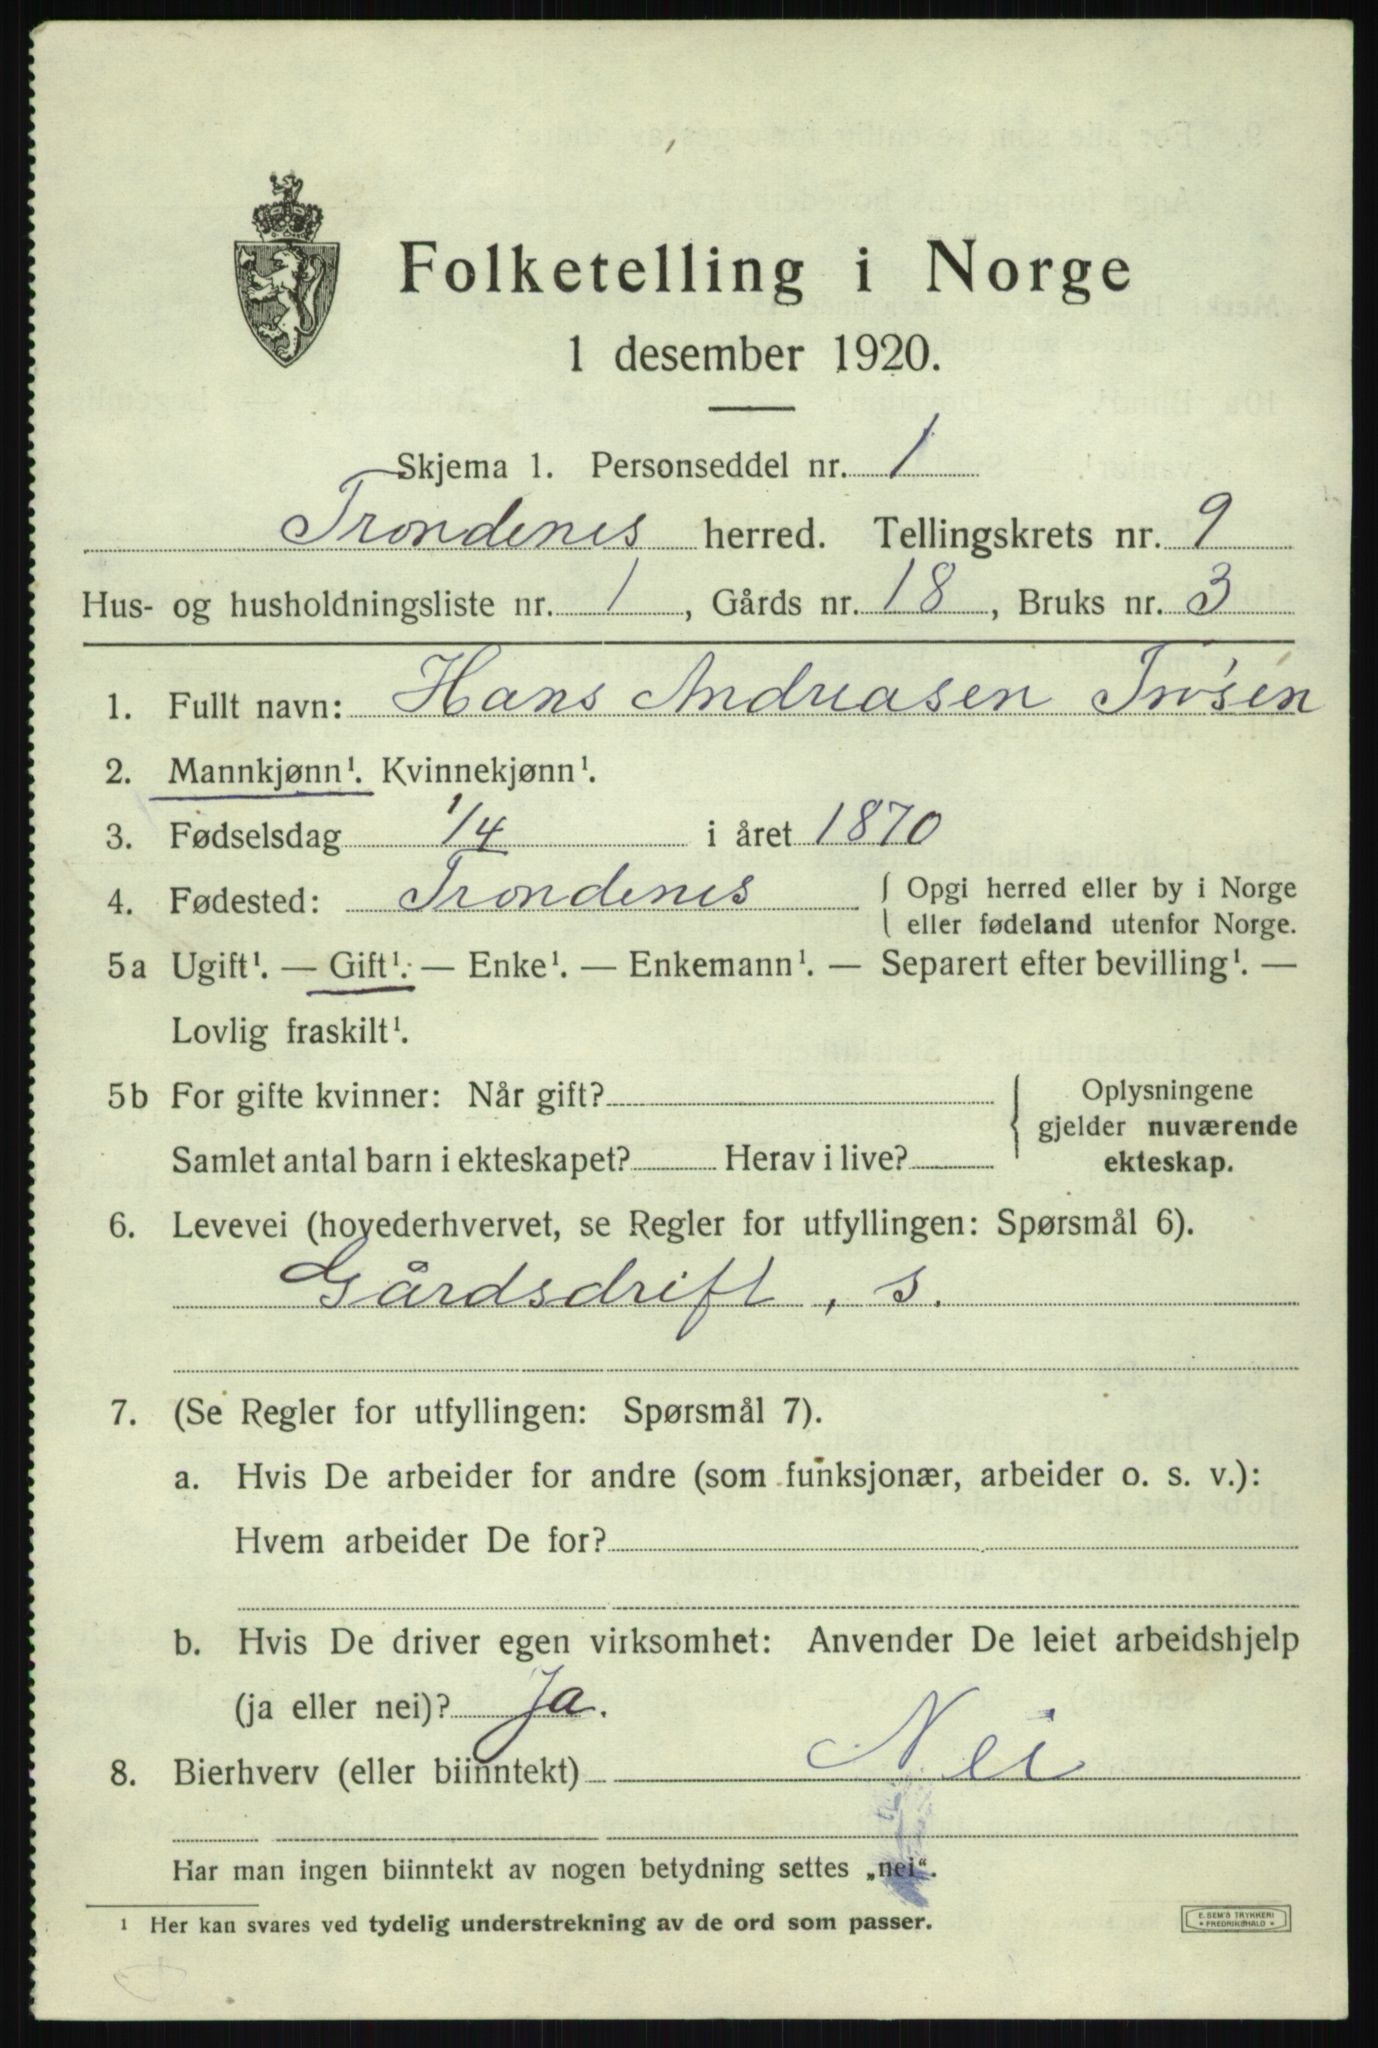 Folketelling i Norge
1 desember 1920.
Skjema 1. Personseddel nr. 1
Trondenes herred. Tellingskrets nr. 9
Hus- og husholdningsliste nr. 1, Gårds nr. 18, Bruks nr. 3
1. Fullt navn: Hans Andreasen Trøsen
2. Mannkjønn¹. Kvinnekjønn¹.
3. Fødselsdag 1/4 i året 1870
4. Fødested: Trondenes { Opgi herred eller by i Norge
eller fødeland utenfor Norge.
5a Ugift¹. — Gift¹. — Enke¹. — Enkemann¹. — Separert efter bevilling¹. —
Lovlig fraskilt¹.
5b For gifte kvinner: Når gift? { Oplysningene
gjelder nuværende
Samlet antal barn i ekteskapet? Herav i live? ekteskap.
6. Levevei (hovederhvervet, se Regler for utfyllingen: Spørsmål 6).
Gårdsdrift, s.
7. (Se Regler for utfyllingen: Spørsmål 7).
a. Hvis De arbeider for andre (som funksjonær, arbeider o. s. v.):
Hvem arbeider De for?
b. Hvis De driver egen virksomhet: Anvender De leiet arbeidshjelp
(ja eller nei)? Ja.
8. Bierhverv (eller biinntekt) Nei
Har man ingen biinntekt av nogen betydning settes „nei“.
¹ Her kan svares ved tydelig understrekning av de ord som passer.
E. SEM'S TRYKKERI
* FREDRIKSHALD *